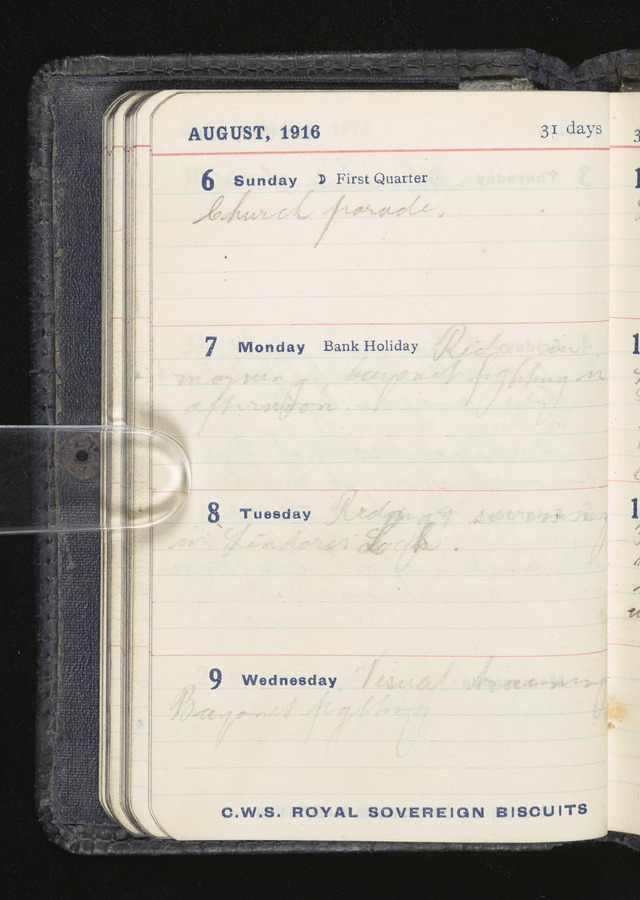 AUGUST, 1916 31 days
6 Sunday First Quarter
Church parade.
7 Monday Bank Holiday Riding in
morning, bayonet fighting in
afternoon.
8 Tuesday
in Lindores Loch.
9 Wednesday Visual training
Bayonet fighting
C.W.S. ROYAL SOVEREIGN BISCUITS